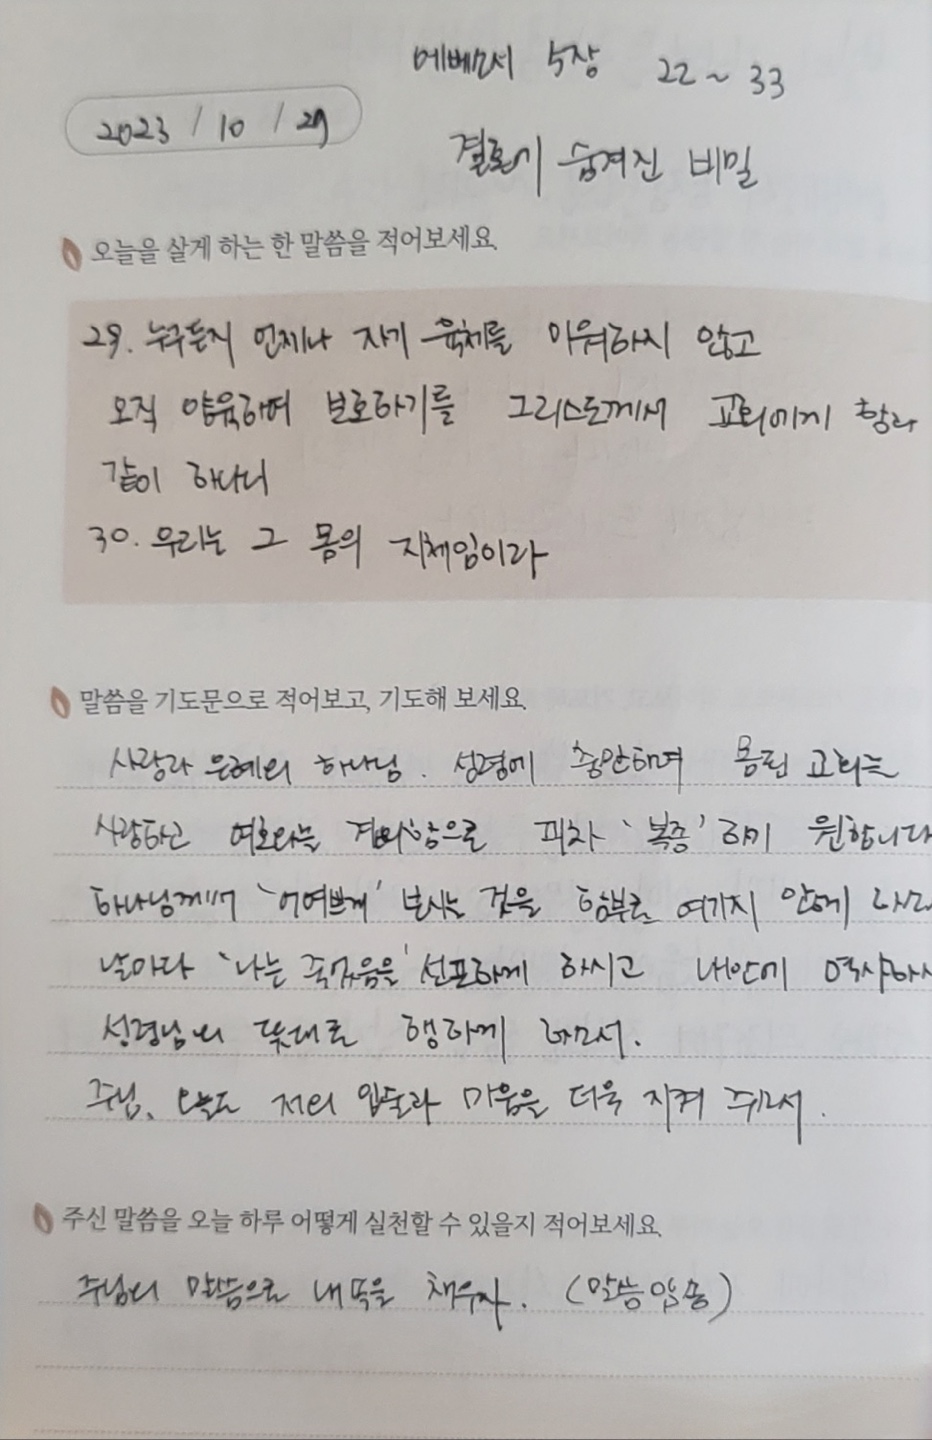 에베소서 5장 22~33
2023 / 10 / 29
결혼에 숨겨진 비밀
오늘을 살게 하는 한 말씀을 적어보세요.
29. 누구든지 언제나 자기 육체를 미워하지 않고
오직 양육하여 보호하기를 그리스도께서 교회에게 함과
같이 하나니
30. 우리는 그 몸의 지체임이라
말씀을 기도문으로 적어보고, 기도해 보세요.
사랑과 은혜의 하나님. 성령에 충만하여 몸된 교회는
사랑하고 경외함으로 피차 '복종' 하기 원합니다
하나님께서 '어여쁘게' 보시는 것을 함부로 여기지 않게
날마다 '나는 죽었음을' 선포하게 하시고 내안에 역사하시
성령님의 뜻대로 행하게 하소서.
주님, 오늘도 저의 입술과 마음을 더욱 지켜 주소서.
주신 말씀을 오늘 하루 어떻게 실천할 수 있을지 적어보세요.
주님의 말씀으로 내 속을 채우자. (말씀암송)